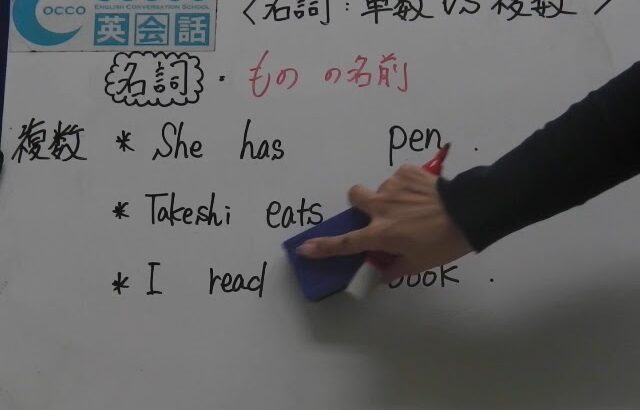 OCCO
ENGLISH CONVERSATION SCHOOL
英会話
＜名詞：単数 VS 複数＞
名詞・ものの名前
複数 * She has pen.
* Takeshi eats
* I read book.